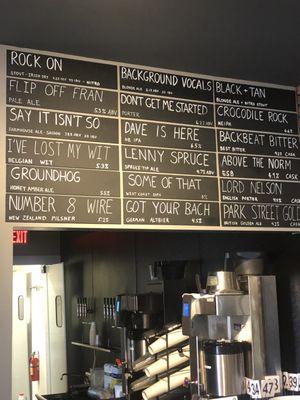 ROCK ON
STOUT - IRISH DRY
NITRO
FLIP OFF FRAN
PALE ALE 5.3% ABV
SAY IT ISN'T SO
FARMHOUSE ALE - SAISON
I'VE LOST MY WIT
BELGIAN WIT 5.3%
GROUNDHOG
HONEY AMBER ALE 5.5%
NUMBER 8 WIRE
NEW ZEALAND PILSNER 5.2%
BACKGROUND VOCALS
BLONDE ALE
DON'T GET ME STARTED
PORTER
DAVE IS HERE
NE IPA
LENNY SPRUCE
SPRUCE TIP ALE 4.7% ABV
SOME OF THAT
WEST COAST
GOT YOUR BACH
GERMAN ALTBIER 4.5%
BLACK + TAN
BLONDE ALE + NITRO STOUT
CROCODILE ROCK
NEIPA
BACKBEAT BITTER
BEST BITTER CASK
ABOVE THE NORM
ESB CASK
LORD NELSON
ENGLISH PORTER CASK
PARK STREET GOLD
BRITISH GOLDEN ALE CASK
EXIT